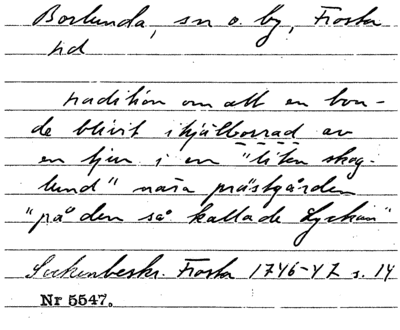 Boslunda, sn o. by, Frosta
hd
tradition om att en bon-
de blivit ihjälborrad av
en tjur i en "liten skog-
lund" nära prästgården
"på den så kallade Lyckan"
Sockenbeskr. Frosta 1746-47 s. 14
Nr 5547.